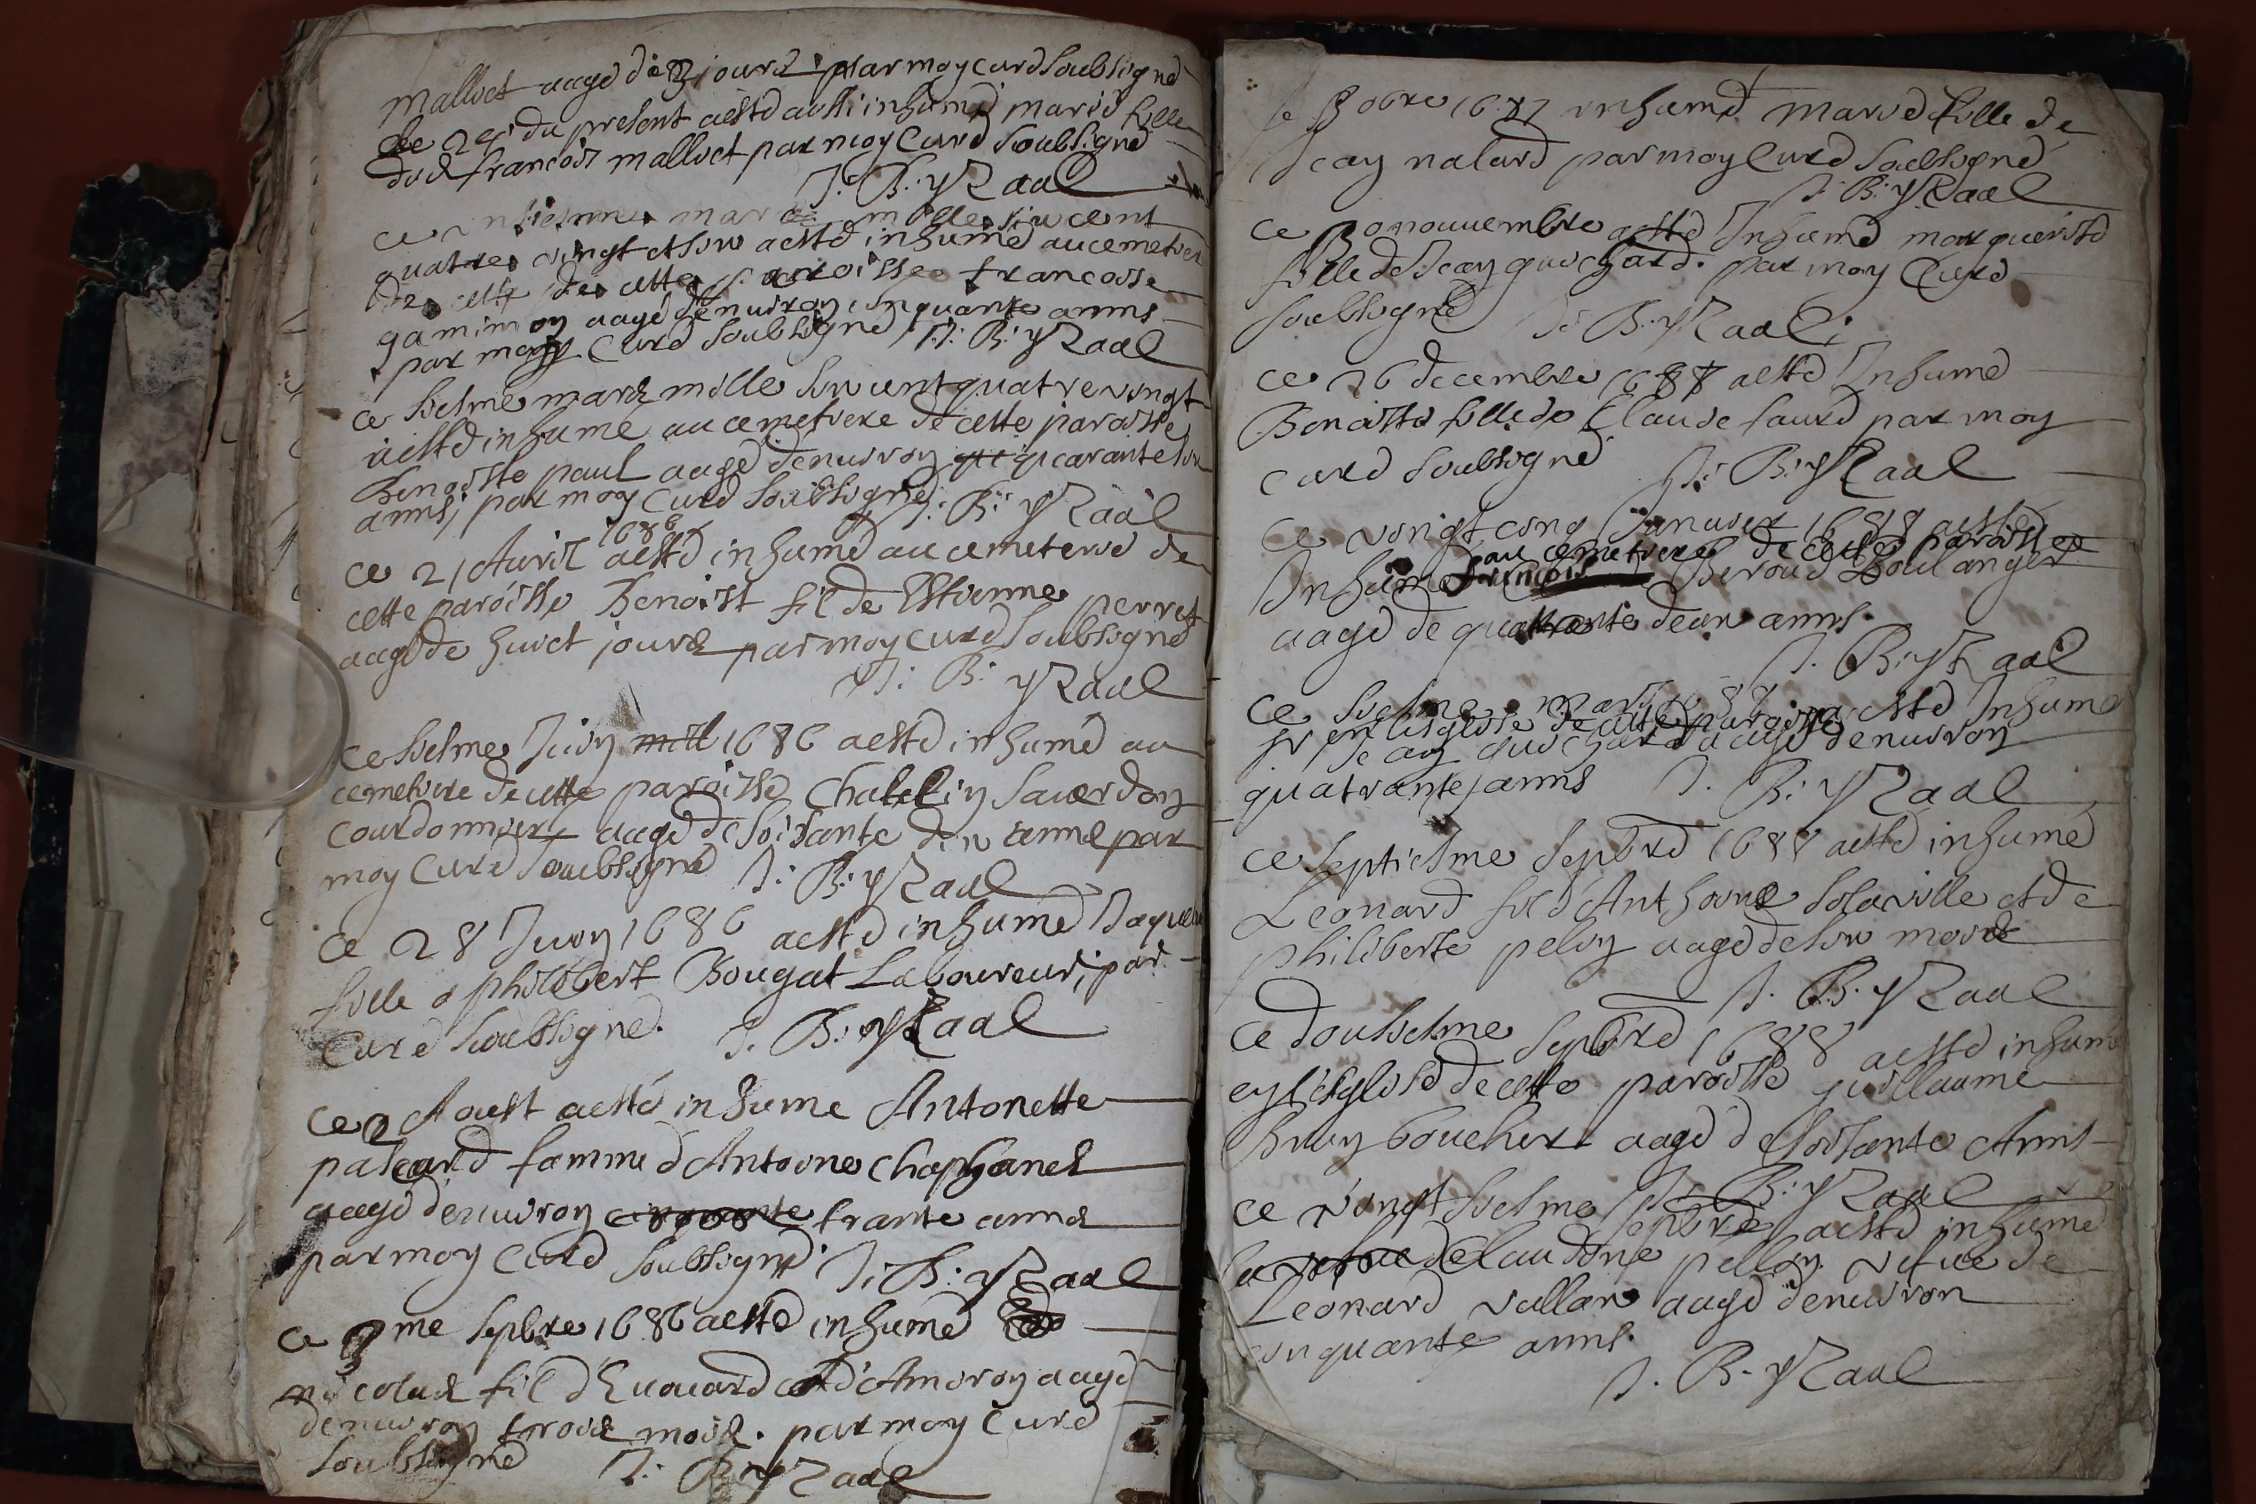 Malloet aagé de 3 jours par moy curé soubsigné
le 24 du present a esté aussi inhumé Marie fille
dud françois malloet par moy Curé soubsigné
J: B: yRaal
ce mars mille six cent
quatre vingt et six a esté inhumé au cemetier
de cette parroisse francoise
gamin aagé denviron cinquante anns
par moy Curé soubsigné J: B: yRaal
ce siesme mars mille six cent quatre vingt
a esté inhumé au cemetiere de cette paroisse
Benoiste paul aagé denviron quarante six
anns, par moy Curé soubsigné J: B: yRaal
ce 21 Avril 1686 a esté inhumé au cemeterie de
cette paroisse Benoist fil de Estienne perret
aagé de huict jours par moy curé soubsigné
J: B: yRaal
ce siesme Juin mill 1686 a esté inhumé au
cemetiere de cette paroisse Chatelin
Courdonnier aagé de soisante anns par
moy Curé soubsigné J: B: yRaal
ce 28 Juin 1686 a esté inhumé Jaquele
fille a philibert Bougat Laboureur, par
Curé soubsigné. J. B: yRaal
ce 2 Aoust a esté inhume Antonette
famme d'Antoine Chaphanel
aagé d'enuiron trante anns
par moy Curé soubsigné J: B: yRaal
ce me sepbre 1686 a esté inhumé
nicolas fil d'Euouard et d'Amoroy aagé
denuiron trois mois. par moy Curé
soubsigné J: B: yRaal
le 8bre 1687 inhumé Marie fille de
Jean nalard par moy Curé soubsigné
J: B: yRaal
ce nouuembre a esté Inhumé marguerite
fille de Jean guichard. par moy Curé
soubsigné J: B: yRaal
ce 26 decembre 1687 a esté Inhumé
Benoiste fille de Claude faure par moy
curé soubsigné J: B: yRaal
Ce vingt cinq Januier 1688 a esté
au cemetiere de cette paroisse
Inhumé francois Beroud Boulanger
aagé de quatrante deux anns.
J. B: yRaal
ce siesme mars 1688 a esté Inhumé
en lesglise de cette paroisse
Jean guichard aagé denuiron
quatrante anns J. B: yRaal
ce septiesme sepbre 1688 a esté inhumé
Leonard fil d'Anthoine Solaville et de
philiberte peloy aagé de six mois
J. B. yRaal
ce dousiesme sepbre 1688 a esté inhumé
en l'esglise de cette paroisse guillaume
boucher aagé de soisante Anns
J: B: yRaal
ce vingt siesme sepbre a esté inhumé
la vefue de Claudine pelloy vefue de
Leonard Vallar aagé denuiron
cinquante anns.
J. B. yRaal